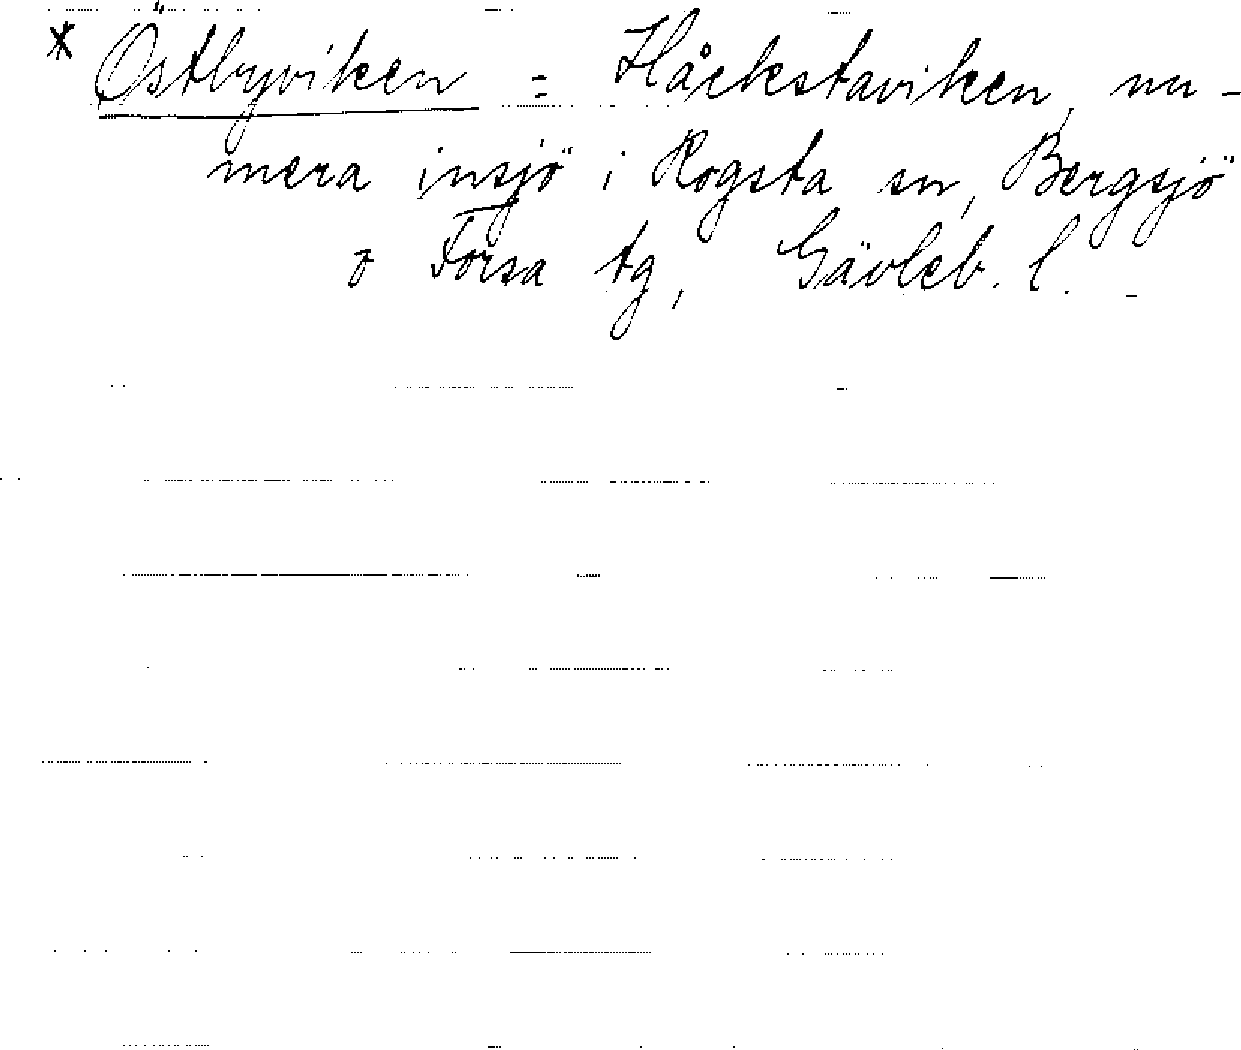 * Östbyviken = Håckstaviken, nu-
mera insjö i Rogsta sn, Bergsjö
o Forsa tg, Gävleb. l. -